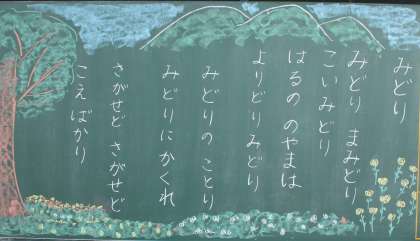 みどり
みどり まみどり
こいみどり
はるの のやまは
よりどり みどり
みどりの ことり
みどりにかくれ
さがせど さがせど
こえ ばかり